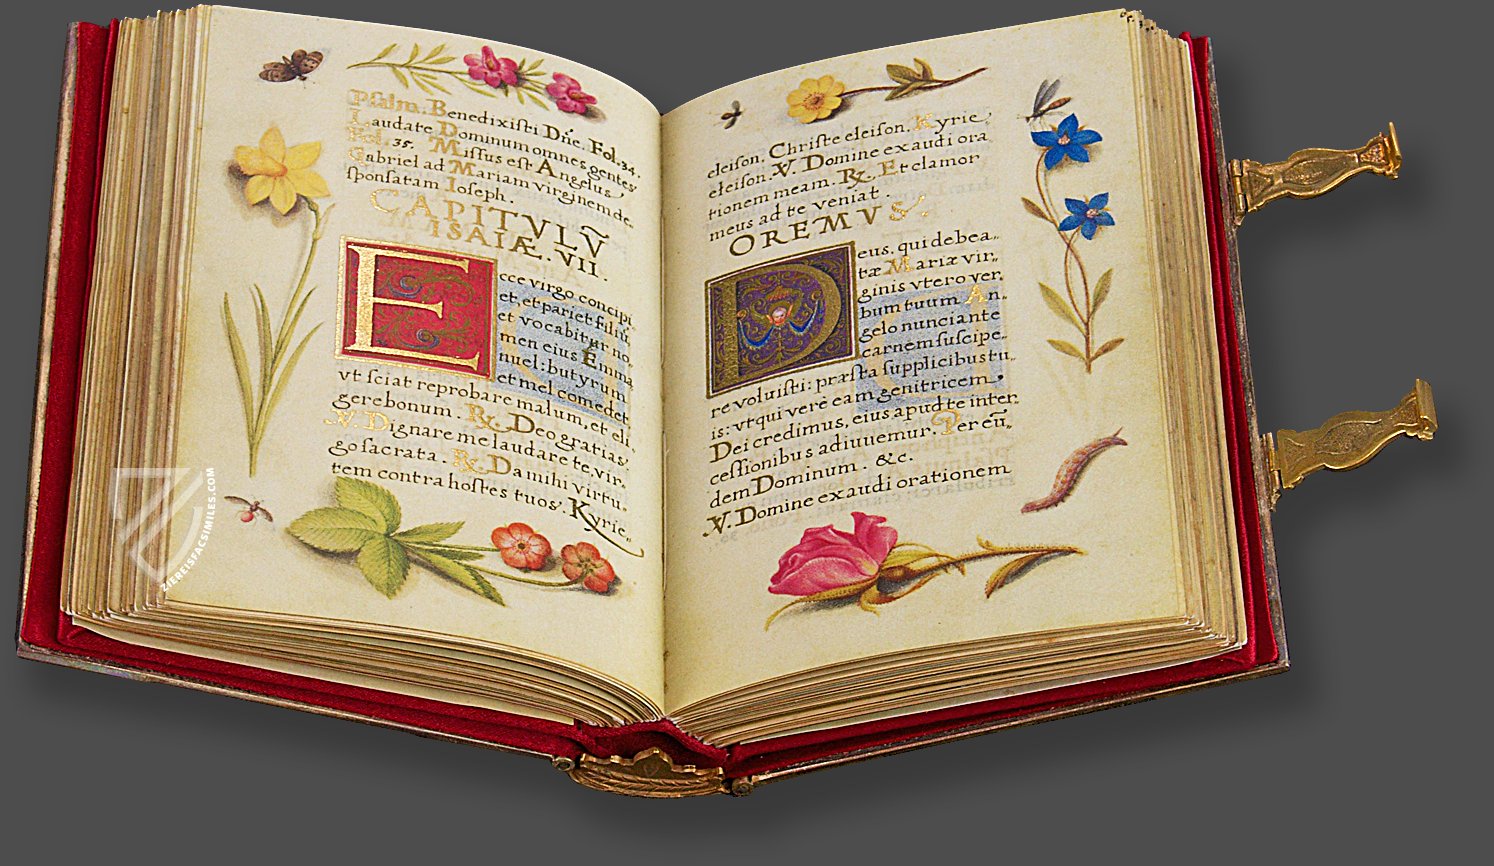 Psalm. Benedixisti Dñe. Fol. 34.
Laudate Dominum omnes gentes
Fol. 35. Missus est Angelus
Gabriel ad Mariam virginem de,
sponsatam Ioseph.
CAPITVLṼ
ISAIÆ. VII.
Ecce virgo concipi
et, et pariet filiũ,
et vocabitur no,
men eius Emma
nuel: butyrum
et mel comedet,
vt sciat reprobare malum, et eli,
gere bonum. ℟. Deo gratias.
℣. Dignare me laudare te, vir,
go sacrata. ℟. Da mihi virtu,
tem contra hostes tuos. Kyrie
eleison. Christe eleison. Kyrie
eleison. ℣. Domine exaudi ora
tionem meam. ℟. Et clamor
meus ad te veniat.
OREMVS.
Deus, qui de bea,
tæ Mariæ vir,
ginis vtero ver,
bum tuum An,
gelo nunciante
carnem suscipe,
re voluisti: præsta supplicibus tu,
is: vt qui verè eam genitricem
Dei credimus, eius apud te inter,
cessionibus adiuuemur. Per eũ,
dem Dominum. &c.
℣. Domine exaudi orationem
ZIEREISFACSIMILES.COM